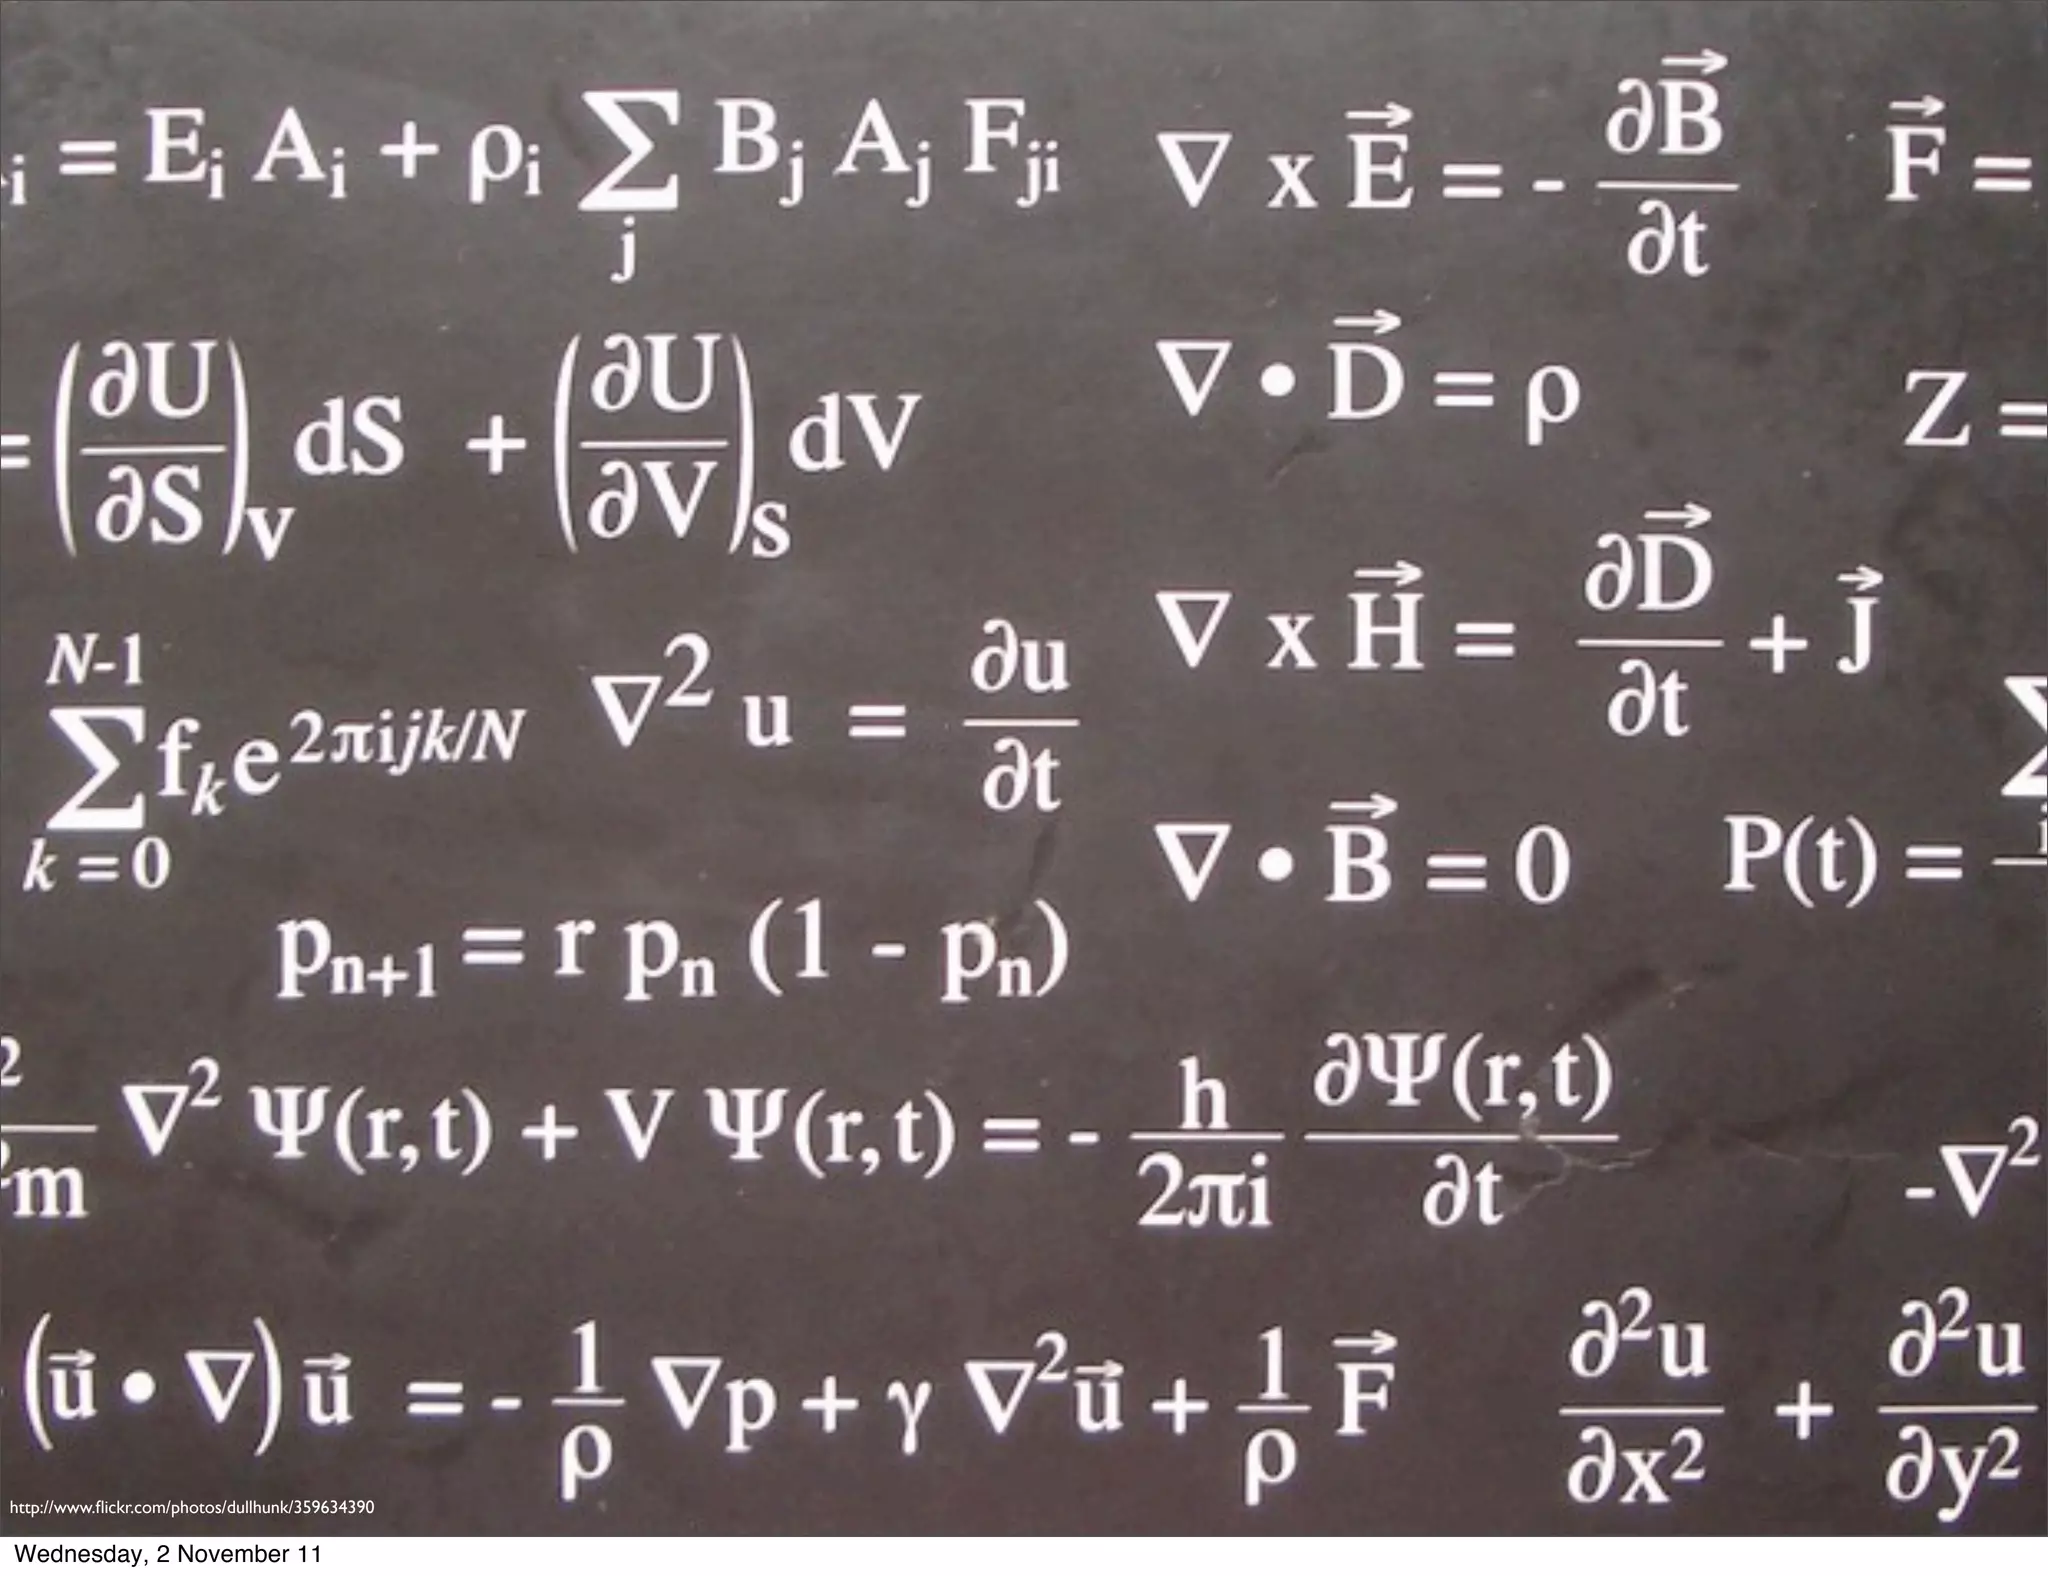 i = Eᵢ Aᵢ + ρᵢ Σⱼ Bⱼ Aⱼ Fⱼᵢ
∇ x E⃗ = - ∂B⃗/∂t
F⃗ =
= (∂U/∂S)ᵥ dS + (∂U/∂V)ₛ dV
∇ • D⃗ = ρ
Z =
N-1 Σ k=0 fₖ e^2πijk/N
∇² u = ∂u/∂t
∇ x H⃗ = ∂D⃗/∂t + J⃗
Σ
∇ • B⃗ = 0
P(t) =
pₙ₊₁ = r pₙ (1 - pₙ)
2/m ∇² Ψ(r,t) + V Ψ(r,t) = - h/2πi ∂Ψ(r,t)/∂t
-∇²
(u⃗ • ∇) u⃗ = - 1/ρ ∇p + γ ∇²u⃗ + 1/ρ F⃗
∂²u/∂x² + ∂²u/∂y²
http://www.flickr.com/photos/dullhunk/359634390
Wednesday, 2 November 11